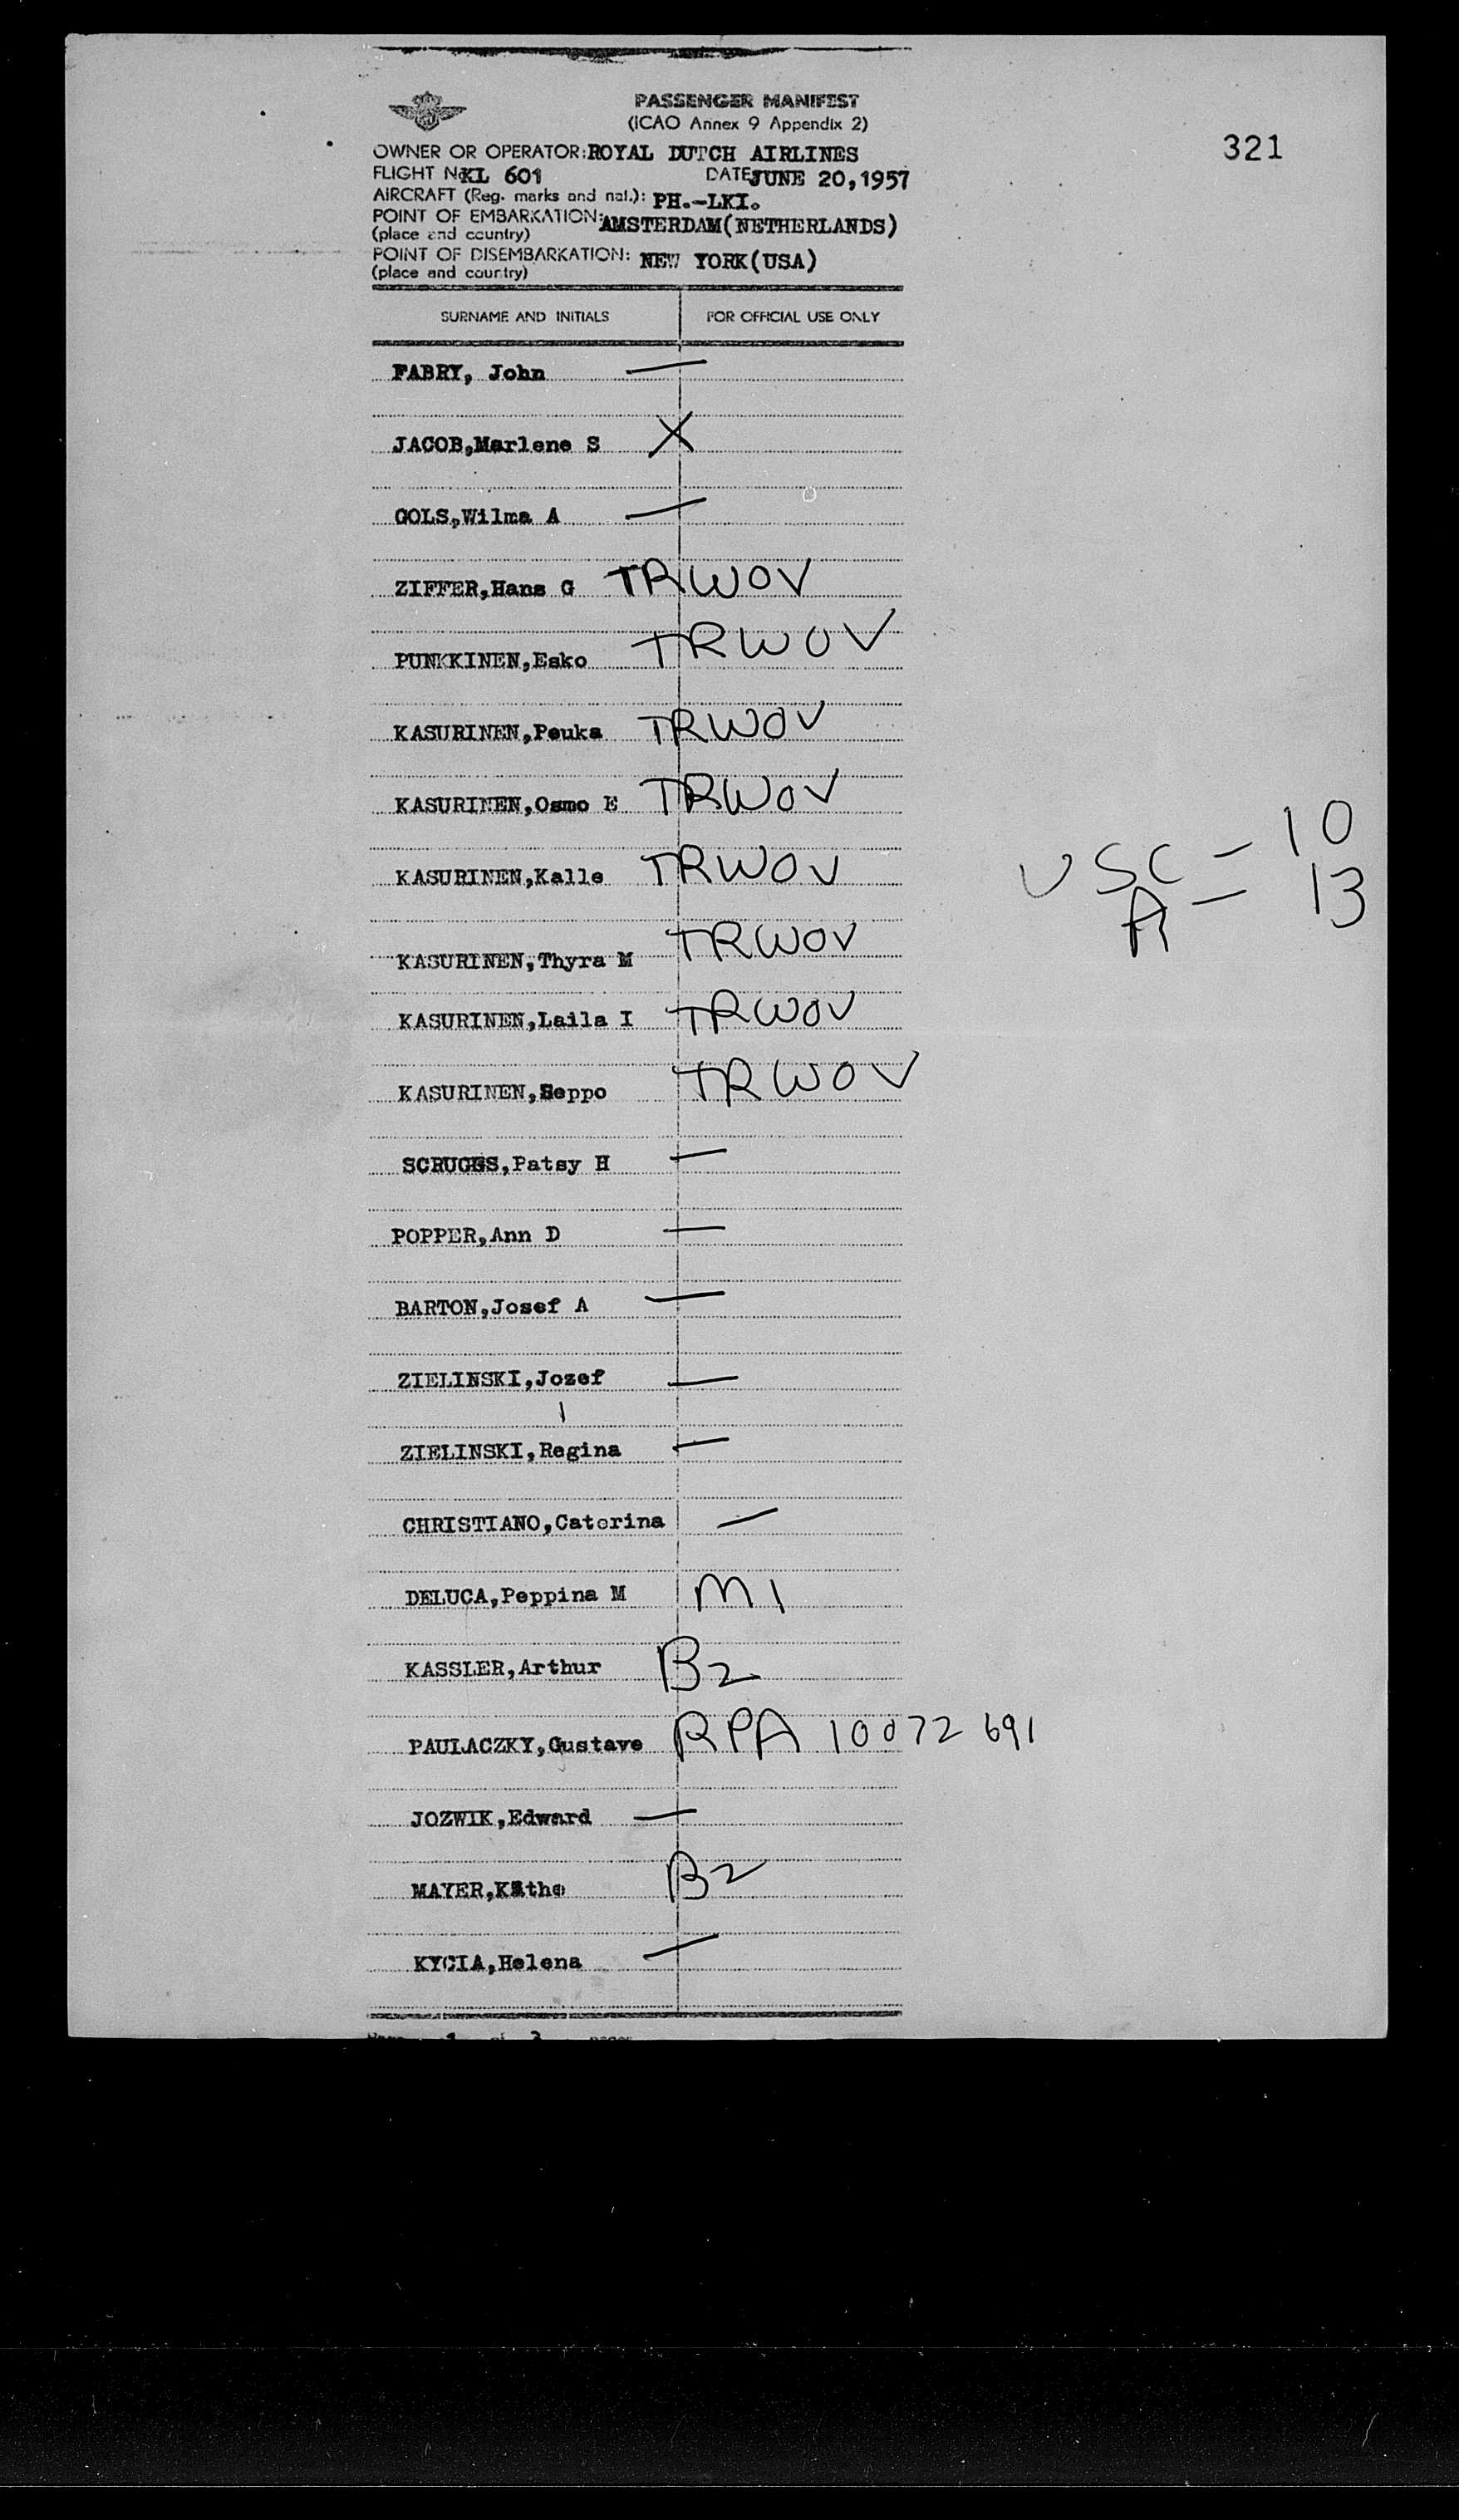 PASSENGER MANIFEST
(ICAO Annex 9 Appendix 2)
321
OWNER OR OPERATOR: ROYAL DUTCH AIRLINES
FLIGHT No KL 601 DATE JUNE 20,1957
AIRCRAFT (Reg. marks and nat.): PH.-LKI.
POINT OF EMBARKATION: AMSTERDAM(NETHERLANDS)
(place and country)
POINT OF DISEMBARKATION: NEW YORK(USA)
(place and country)
SURNAME AND INITIALS FOR OFFICIAL USE ONLY
FABRY, John —
JACOB,Marlene S X
GOLS,Wilma A —
ZIFFER,Hans G TRWOV
PUNKKINEN,Esko TRWOV
KASURINEN,Peuka TRWOV
KASURINEN,Osmo E TRWOV
KASURINEN,Kalle TRWOV
USC - 10
A - 13
KASURINEN,Thyra M TRWOV
KASURINEN,Laila I TRWOV
KASURINEN,Seppo TRWOV
SCRUGGS,Patsy H —
POPPER,Ann D —
BARTON,Josef A —
ZIELINSKI,Jozef —
ZIELINSKI,Regina —
CHRISTIANO,Caterina —
DELUCA,Peppina M M1
KASSLER,Arthur B2
PAULACZKY,Gustave RPA 10072691
JOZWIK,Edward —
MAYER,Käthe B2
KYCIA,Helena —